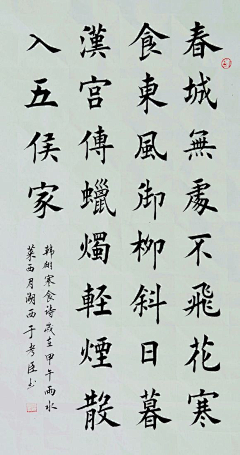 春城無處不飛花寒
食東風御柳斜日暮
漢宮傳蠟燭輕煙散
入五侯家
韓翃寒食詩歲在甲午雨水
萊西月湖西于考臣書